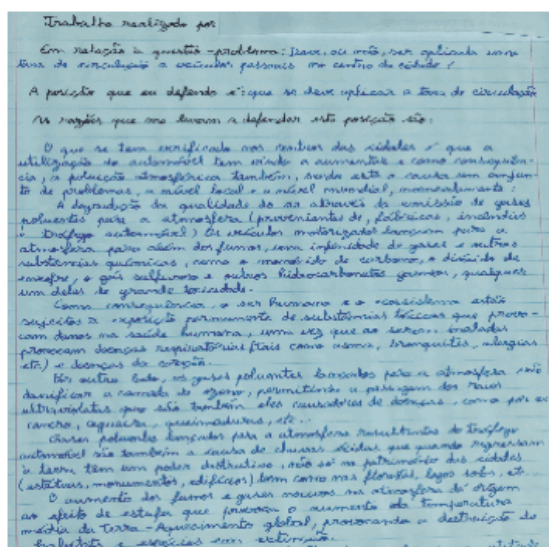 Trabalho realizado por
Em relação à questão-problema: Deve, ou não, ser aplicada uma
taxa de circulação a veículos pessoais no centro da cidade?
A posição que eu defendo é: que se deve aplicar a taxa de circulação
As razões que me levam a defender esta posição são:
O que se tem verificado nos centros das cidades é que a
utilização do automóvel tem vindo a aumentar e como consequên-
cia, a poluição atmosférica também, sendo esta a causa um conjun-
to de problemas, a nível local e a nível mundial, nomeadamente:
A degradação da qualidade do ar através da emissão de gases
poluentes para a atmosfera (provenientes de, fábricas, incêndios
e tráfego automóvel). Os veículos motorizados lançam para a
atmosfera para além dos fumos, uma infinidade de gases e outras
substâncias químicas, como o monóxido de carbono, o dióxido de
enxofre, o gás sulfuroso e outros hidrocarbonetos gasosos, qualquer
um deles de grande toxicidade.
Como consequência, o ser humano e o ecossistema estão
sujeitos à exposição permanente de substâncias tóxicas que provo-
cam danos na saúde humana, uma vez que ao serem inaladas
provocam doenças respiratórias (tais como asma, bronquites, alergias
etc.) e doenças do coração.
Por outro lado, os gases poluentes lançados para a atmosfera vão
danificar a camada de ozono, permitindo a passagem dos raios
ultravioletas que são também eles causadores de doenças, como por ex
cancro, cegueira, queimaduras, etc..
Gases poluentes lançados para a atmosfera resultantes do tráfego
automóvel são também a causa de chuvas ácidas que quando regressam
à terra têm um poder destrutivo, não só no património das cidades
(estátuas, monumentos, edifícios) bem como nas florestas, lagos, solos, et
O aumento dos fumos e gases nocivos na atmosfera dá origem
ao efeito de estufa que provoca o aumento da temperatura
média da Terra - Aquecimento global, provocando a destruição de
habitats e espécies em extinção.